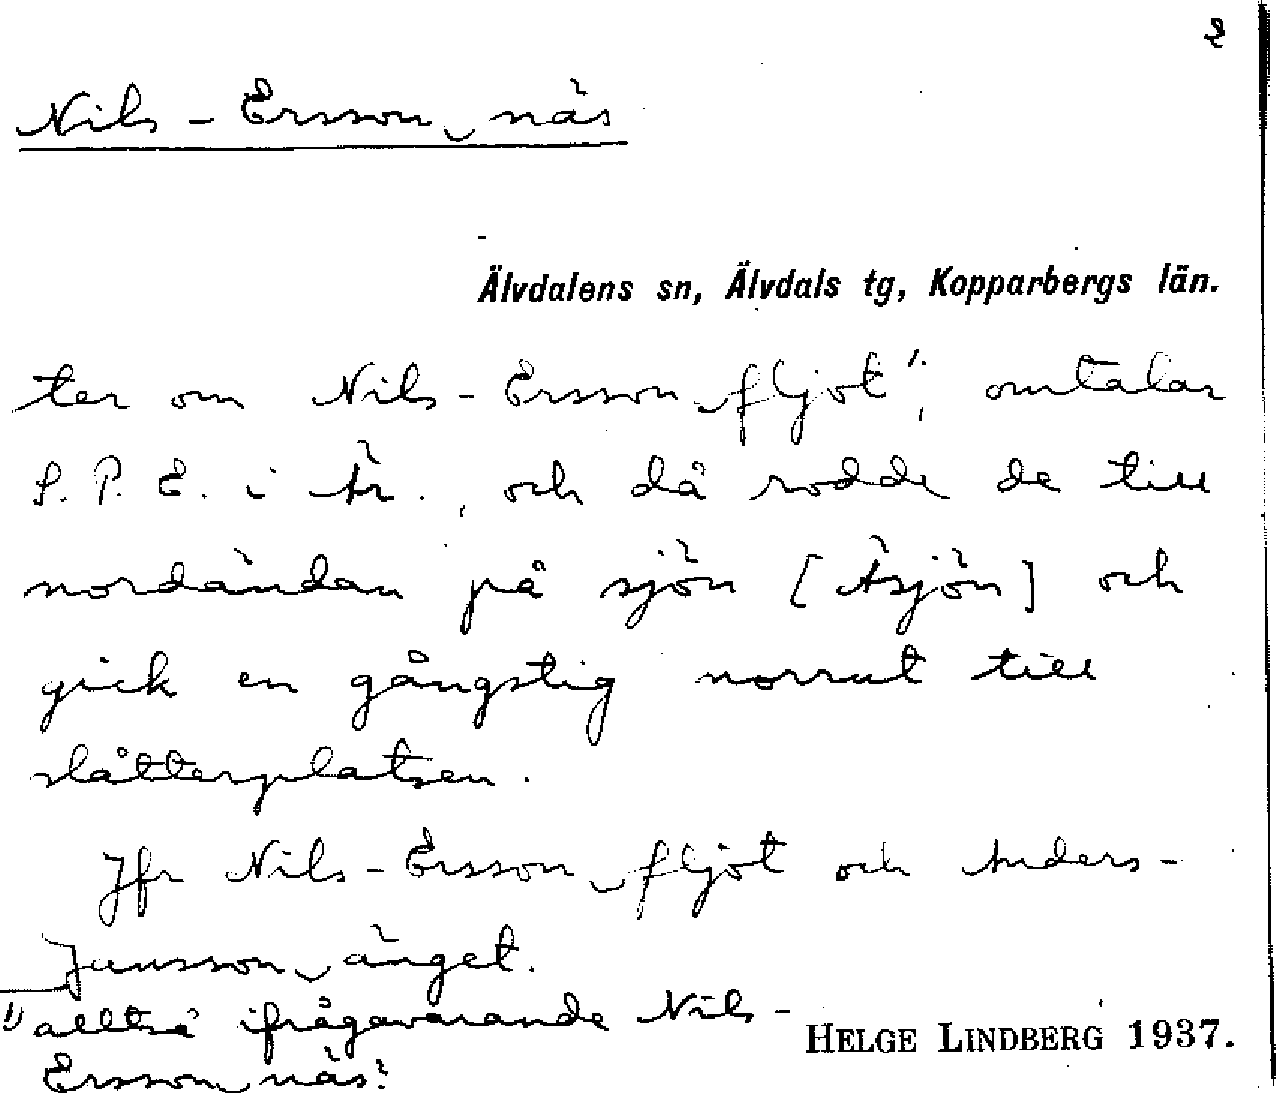 2
Nils-Ersson‿näs
Älvdalens sn, Älvdals tg, Kopparbergs län.
ter om Nils-Ersson‿fljot" 1), omtalar
S. P. E. i Är., och då rodde de till
nordändan på sjön [Äsjön] och
gick en gångstig norrut till
slåtterplatsen.
Jfr Nils-Ersson‿fljot och Anders-
Jansson‿änget.
1) alltså ifrågavarande Nils-
Ersson‿näs?
HELGE LINDBERG 1937.